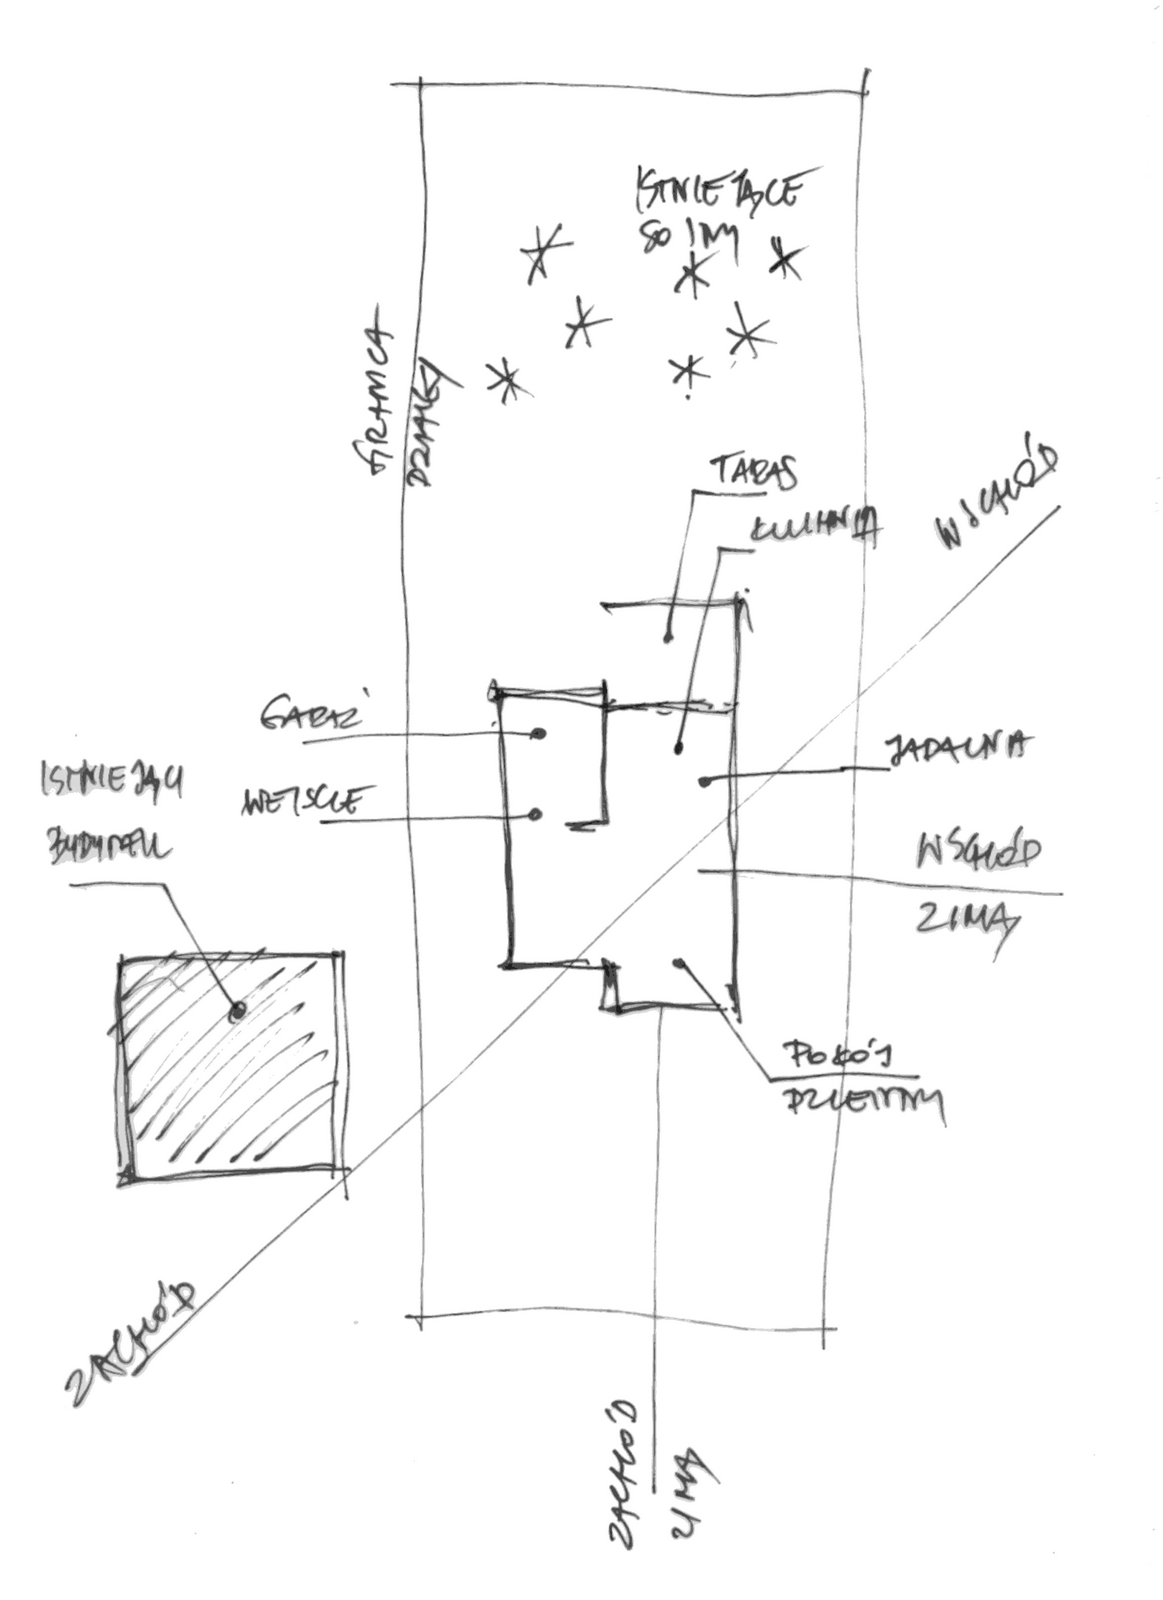 ISTNIEJĄCE
SOSNY
GRANICA
DZIAŁKI
TARAS
KUCHNIA
WSCHÓD
GARAŻ
WEJŚCIE
JADALNIA
ISTNIEJĄCY
BUDYNEK
WSCHÓD
ZIMĄ
POKÓJ
DZIENNY
ZACHÓD
ZACHÓD
ZIMĄ